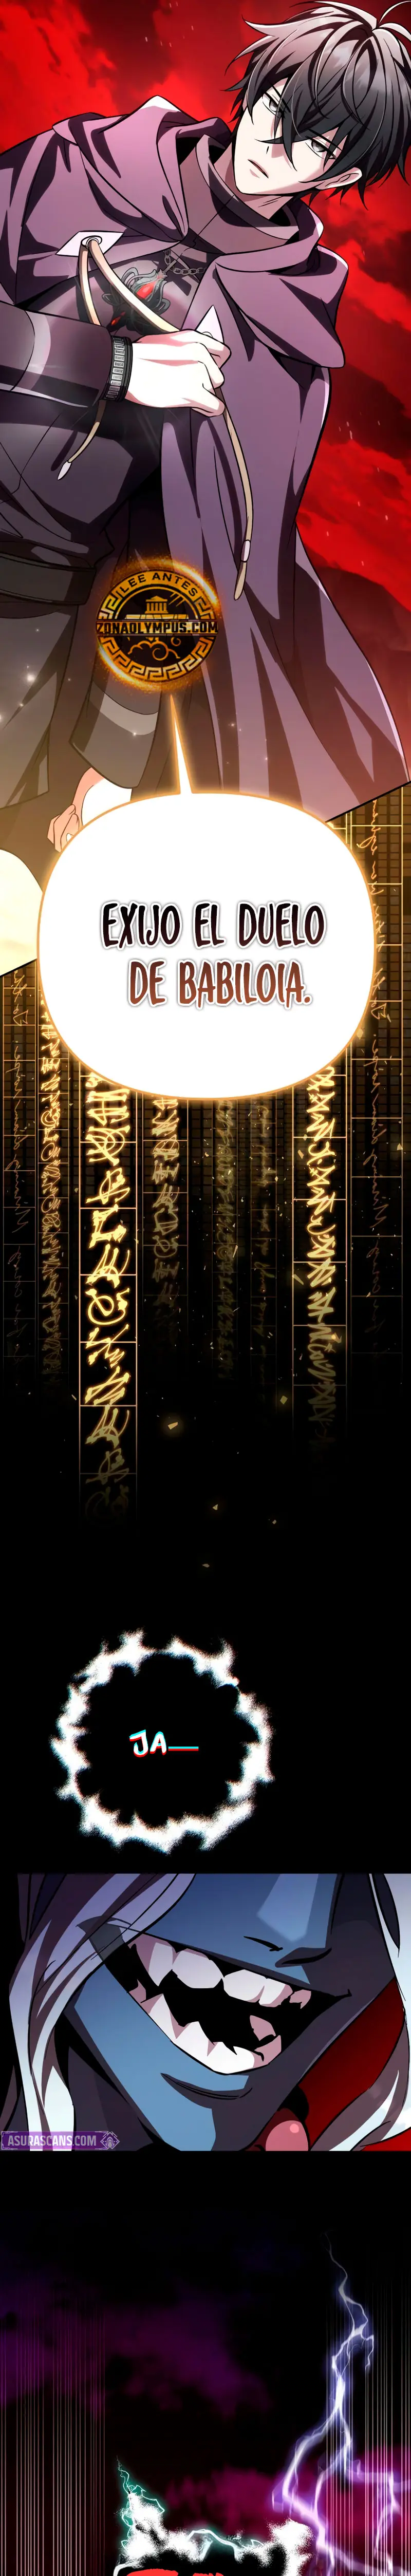 LEE ANTES
ZONAOLYMPUS.COM
EXIJO EL DUELO
DE BABILOIA.
JA—
ASURASCANS.COM